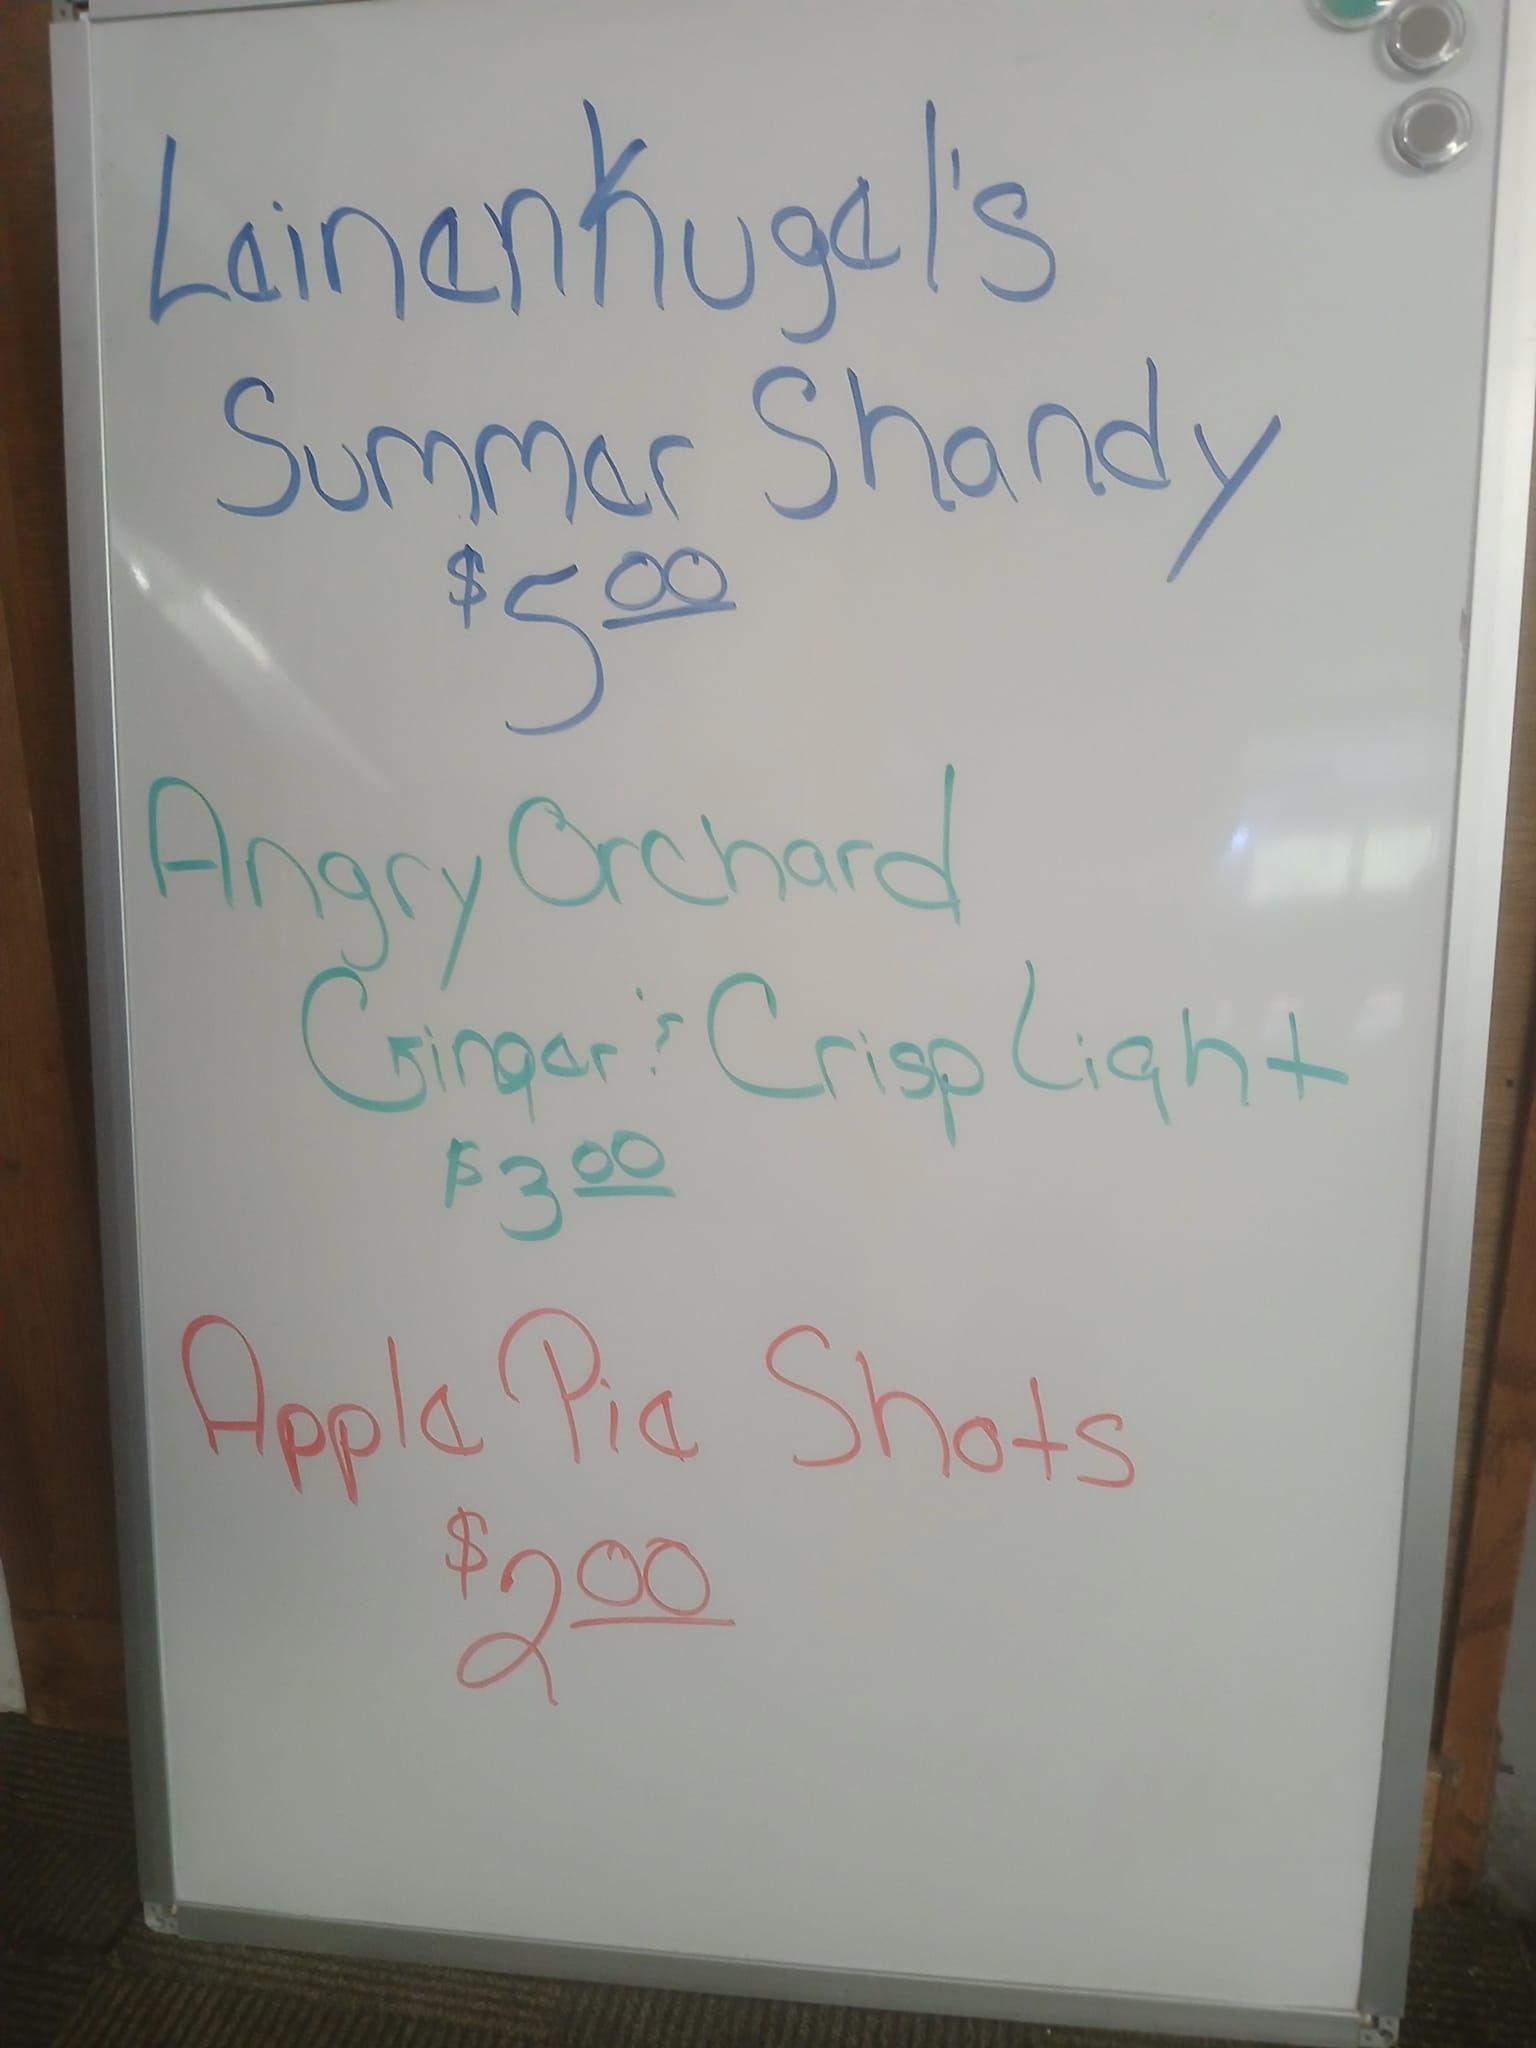 Leinenkugel's
Summer Shandy
$5.00
Angry Orchard
Ginger & Crisp Light
$3.00
Apple Pie Shots
$2.00